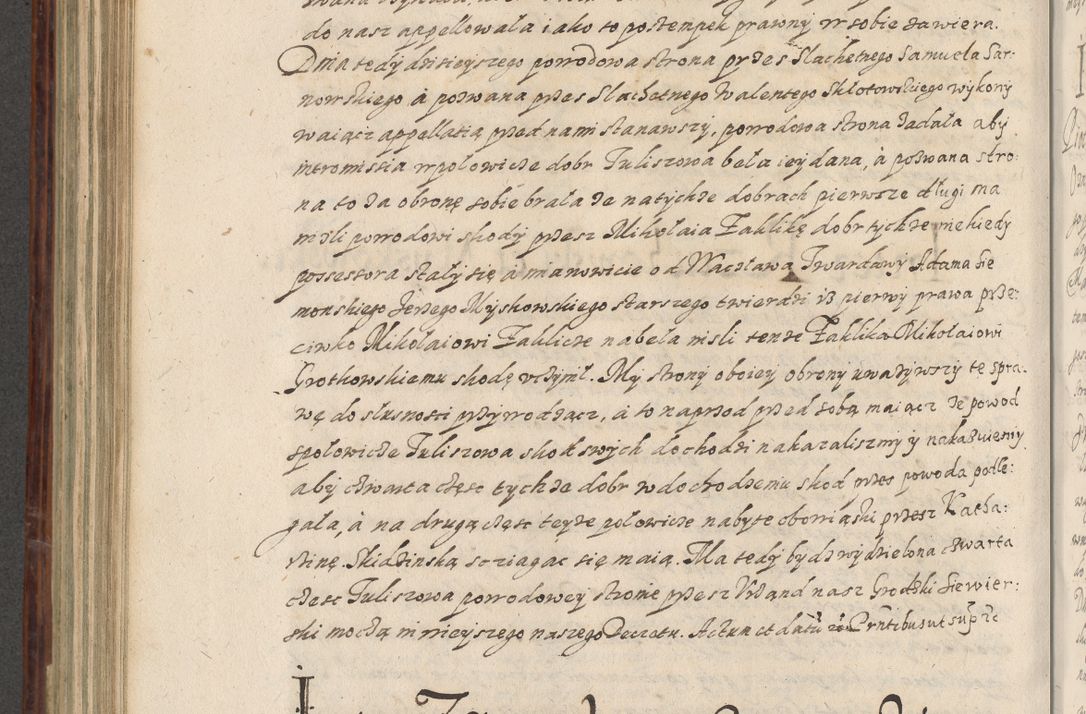 do nasz appellowała i ako to postempek prawny w sobie zawiera.
Dnia tedy dzisieyszego powodowa strona przes Slachetnego Samuela Sar-
nowskiego à pozwana przes Slachetnego Walentego Skłotowskiego wykony
waiącz appellatią przed nami stanawszy, powodowa strona żadała aby
intromissia w połowicże dobr Tuliszowa beła iey dana, à pozwana stro:
na to za obronę sobie brała że na tychże dobrach pierwsze długi ma
niżli powodowi skody przesz Mikołaia Zaklikę dobr tychże niekiedy
possessora stały się à mianowicie od Waczława Twardawy Adama Sie
monskiego Jerzego Myskowskiego starszego twierdzi iż pierwy prawa prze:
ciwko Mikołaiowi Zaklicże nabeła nisli tenże Zaklika Mikołaiowi
Grotkowskiemu skodę vczynił. My strony oboiey obrony uważywszy tę spra-
wę do slusnosci przywrodzącz, à to naprzod przed sobą maiącz że powod
społowicże Tuliszowa skod swych dochodzi nakazalismy y nakazuiemy
aby czwarta częsc tychże dobr w dochodzeniu skod przes powoda podle:
gała, à na drugą częsc teyże połowicże nabyte obowiąski przesz Katha:
rinę Skidzinską sciągac się maią. Ma tedy bydz wydzielona czwarta
częsc Tuliszowa powodowey stronie przesz Vrząnd nasz Grodzki Siewier:
ski moczą ninieyszego naszego Decretu. Actum et datũ Prñtibus ut sup̃